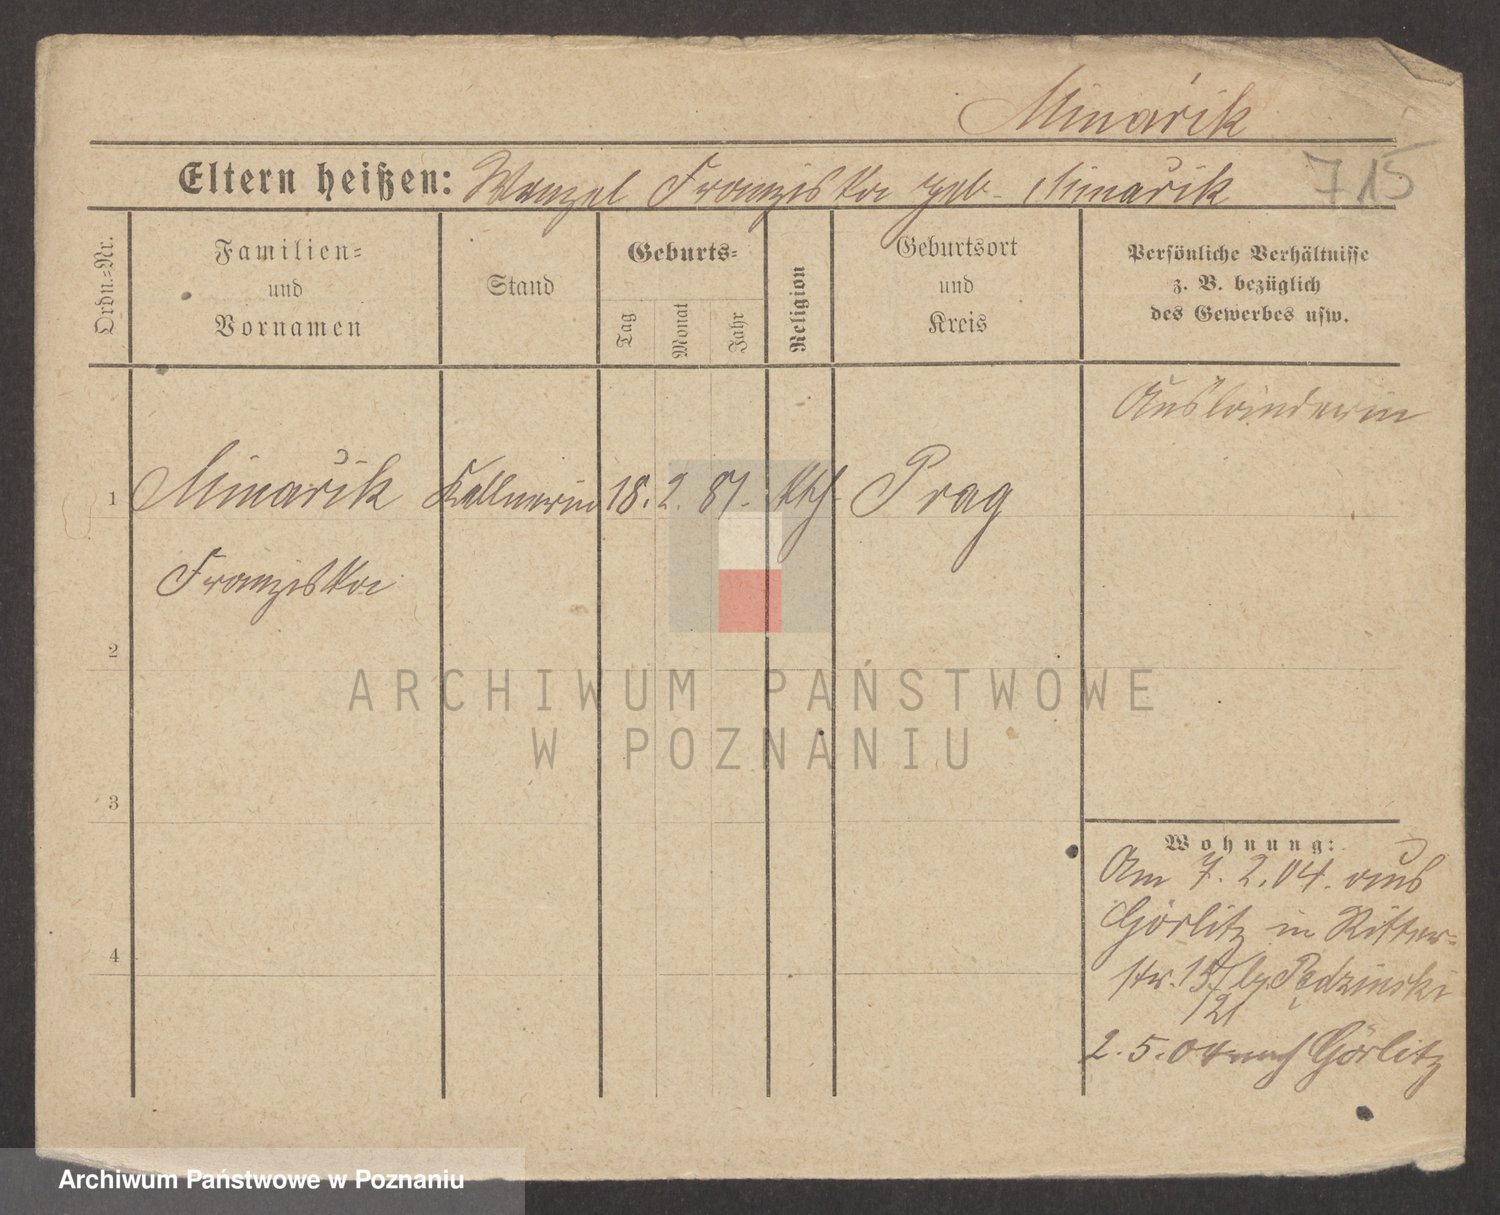 Minařik
Eltern heißen: Wenzel Franziska geb. Minařik
715
Ordn.=Nr.
Familien=
und
Vornamen
Stand
Geburts=
Tag
Monat
Jahr
Religion
Geburtsort
und
Kreis
Persönliche Verhältnisse
z. B. bezüglich
des Gewerbes usw.
Ausländerin
1 Minařik Kellnerin 18. 2. 81. kth. Prag
Franziska
2
3
4
Wohnung:
Am 7. 2. 04. aus
Görlitz in Ritter=
str. 15/21 bei Pędzinski
2. 5. 04 nach Görlitz
ARCHIWUM PAŃSTWOWE
W POZNANIU
Archiwum Państwowe w Poznaniu